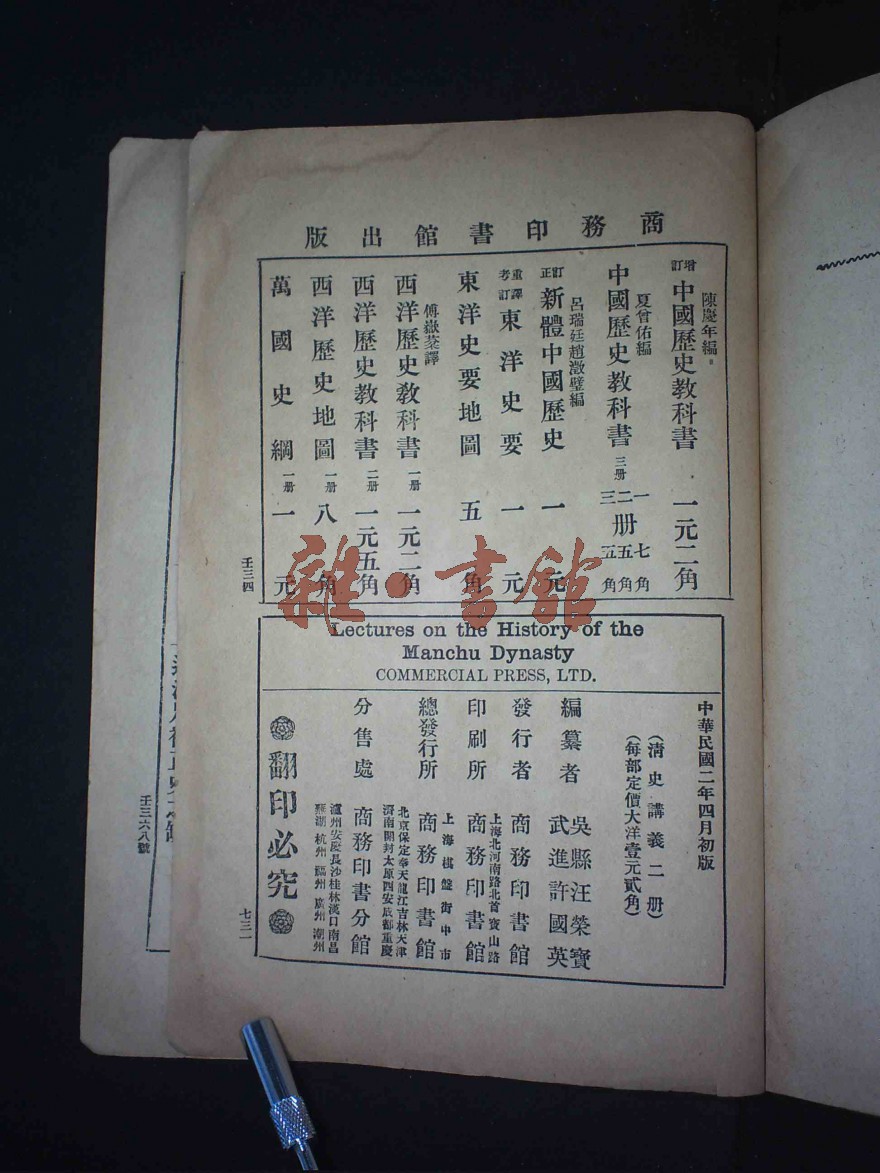 商務印書館出版
陳慶年編
增訂中國歷史教科書 一元二角
夏曾佑編
中國歷史教科書 三册 一二三册 七角 五角 五角
呂瑞廷趙澂璧編
訂正新體中國歷史 一元
重譯考訂東洋史要 一元
東洋史要地圖 五角
傅嶽棻譯
西洋歷史教科書 一册 一元二角
西洋歷史教科書 二册 一元五角
西洋歷史地圖 一册 八角
萬國史綱 一册 一元
壬三四
雜·書館
Lectures on the History of the
Manchu Dynasty
COMMERCIAL PRESS, LTD.
中華民國二年四月初版
(清史講義二册)
(每部定價大洋壹元貳角)
編纂者 吳縣汪榮寶
武進許國英
發行者 商務印書館
上海北河南路北首寶山路
印刷所 商務印書館
上海棋盤街中市
總發行所 商務印書館
北京保定奉天龍江吉林天津
濟南開封太原西安成都重慶
分售處 商務印書分館
瀘州安慶長沙桂林漢口南昌
蕪湖杭州福州廣州潮州
翻印必究
七三一
壬三六八號